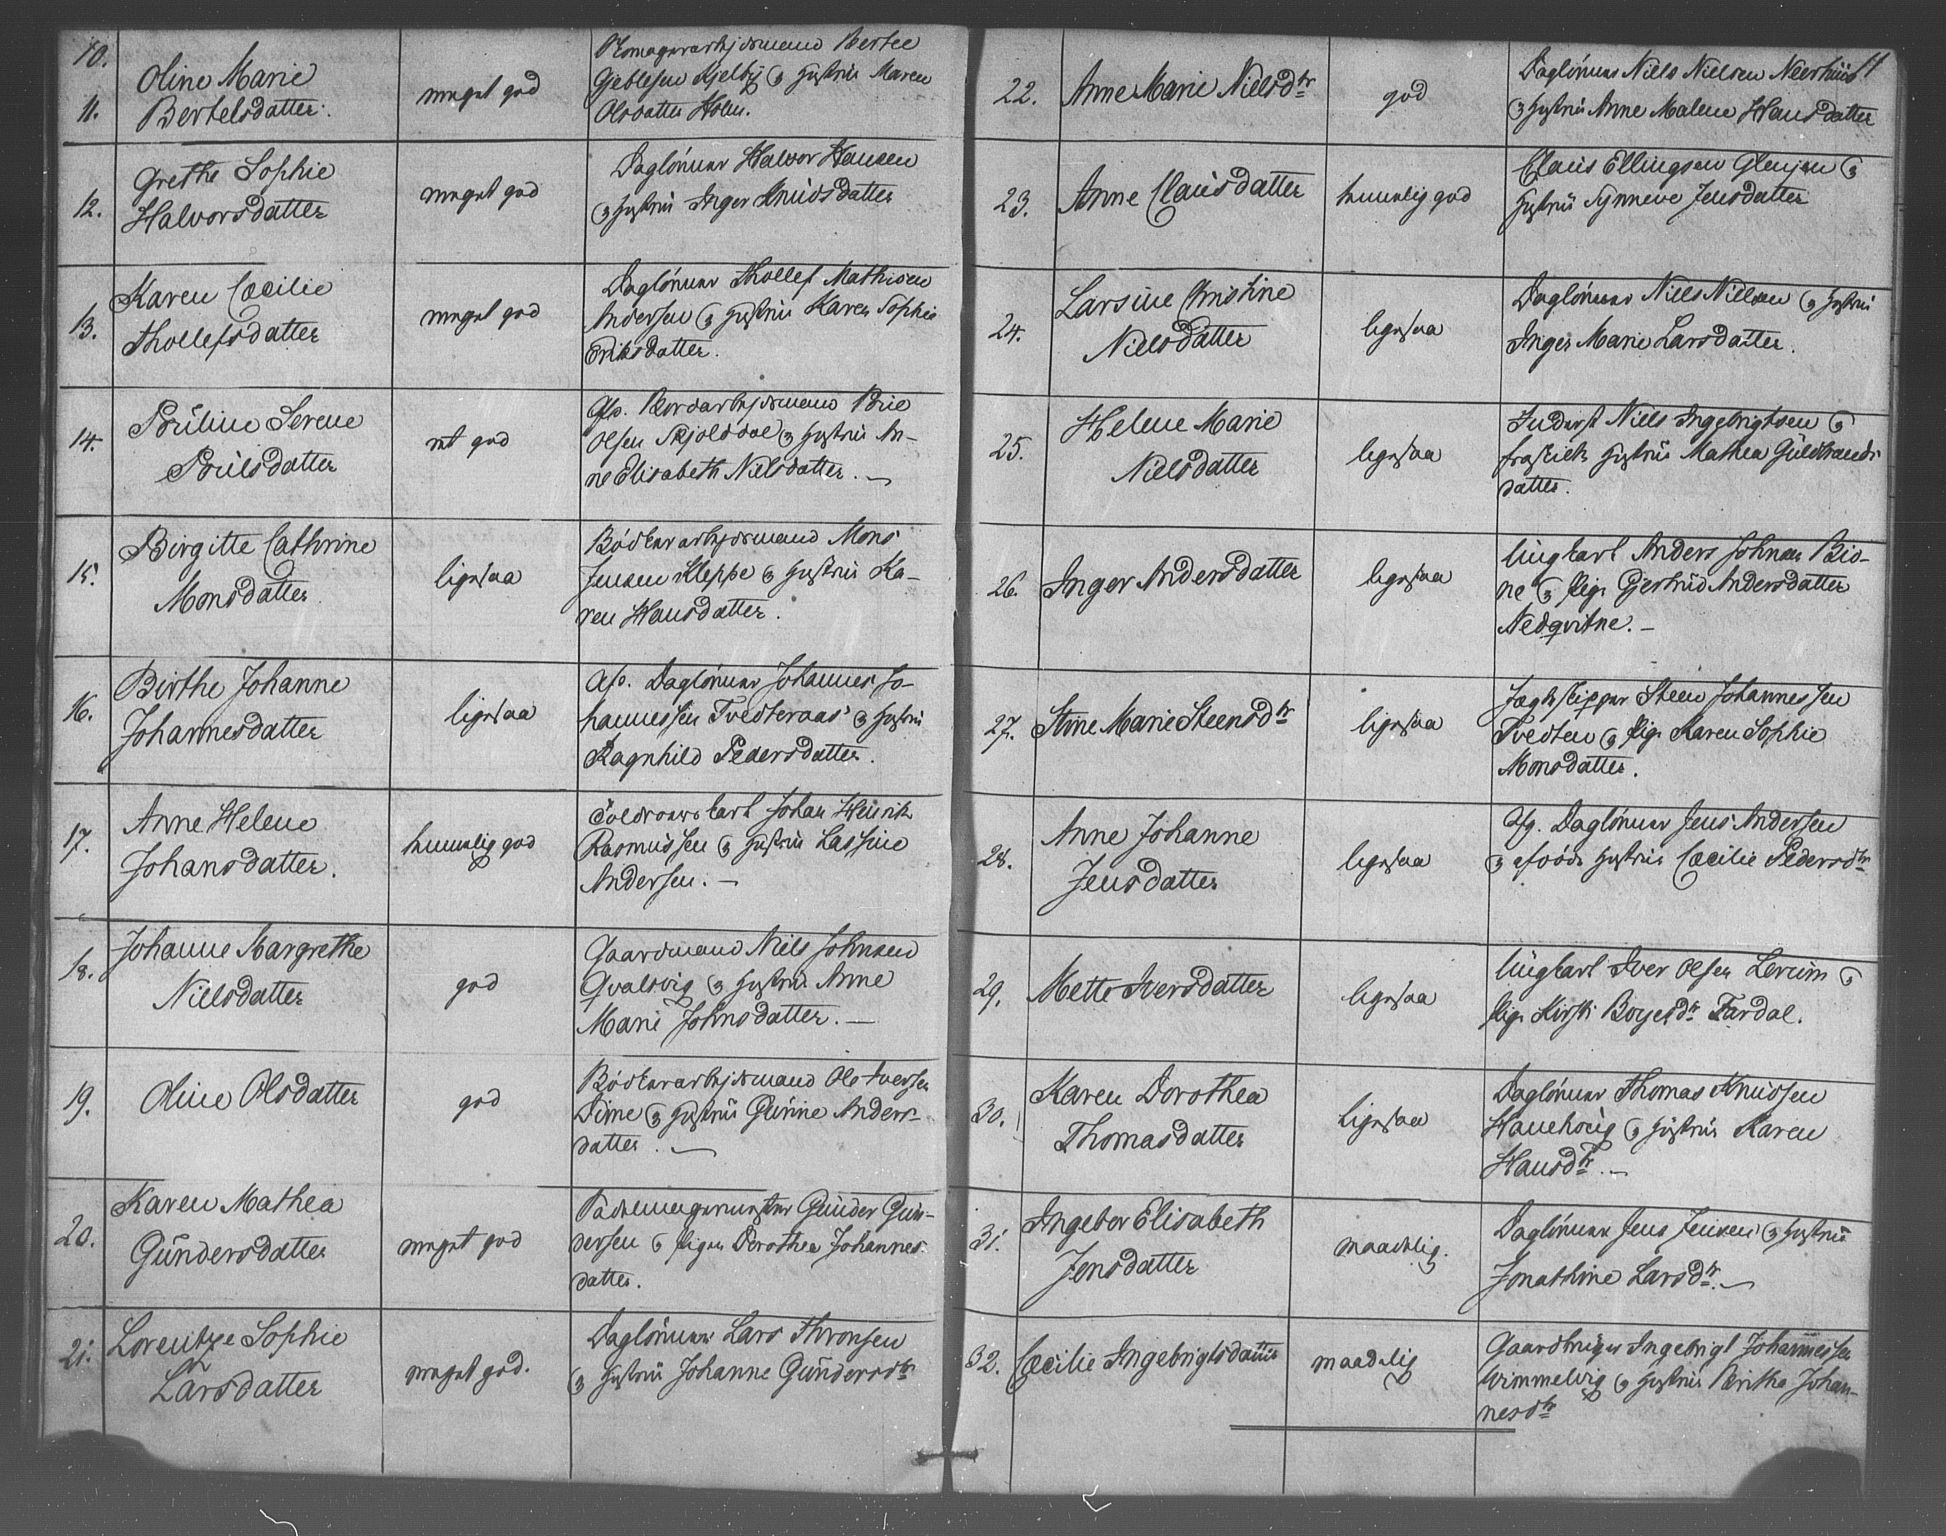 10.
11.
Oline Marie
Bertelsdatter.
meget god
Skomagerarbejdsmand Bertel
Gjeblesen Kjelbÿ og Hustrue Maren
Olsdatter Holm.
12.
Grethe Sophie
Halvorsdatter
meget god
Daglönner Halvor Hansen
og Hustrue Inger Knudsdatter
13.
Karen Cæcilie
Thollefsdatter
meget god
Daglönner Thollef Mathisen
Andersen og Hustrue Karen Sophie
Eriksdatter.
14.
Pouline Serene
Poulsdatter
ret god
Olsen Skjolddal og Hustrue An-
ne Elisabeth Nielsdatter. —
15.
Birgitte Cathrine
Monsdatter
ligesaa
Bödkerarbejdsmand Mons
Jensen Kleppe og Hustrue Ka-
ren Hansdatter.
16.
Birthe Johanne
Johannesdatter
ligesaa
Afs. Daglönner Johannes Jo-
hannessen Tvedteraas og Hustrue
Ragnhild Pedersdatter.
17.
Anne Helene
Johansdatter.
temmelig god
Johan Henrik
Rasmussen og Hustrue Lassine
Andersen. —
18.
Johanne Margrethe
Nielsdatter
god
Gaardmand Niels Johnsen
Qvalvig og Hustrue Anne
Marie Johnsdatter. —
19.
Oline Olsdatter
god
Bödkerarbejdsmand Ole Iversen
Dime og Hustrue Gurine Anders-
datter. —
20.
Karen Mathea
Gundersdatter
meget god
Gunder Gun-
dersen og Pigen Dorothea Johannes-
datter.
21.
Lorentze Sophie
Larsdatter
meget god.
Daglönner Lars Thronsen
og Hustrue Johanne Gundersdtr
11
22.
Anne Marie Nielsdtr
god
Daglönner Niels Nielsen Neerhuus
og Hustrue Anne Malene Hansdatter
23.
Anne Clausdatter
temmelig god
Claus Ellingsen Glenjen og
Hustrue Synneve Jensdatter
24.
Larsine Christine
Nielsdatter
ligesaa
Daglönner Niels Nielsen og Hustrue
Inger Marie Larsdatter.
25.
Helene Marie
Nielsdatter
ligesaa
Inderst Niels Ingebrigtsen og
fraskilt Hustrue Mathea Guldbrands-
datter.
26.
Inger Andersdatter
ligesaa
Ungkarl Anders Johnsen Bio-
ne og Pige Gjertrud Andersdatter
Nedqvitne. —
27.
Stine Marie Steensdtr
ligesaa
Jagtskipper Steen Johannessen
Tvedten og Pige Karen Sophie
Monsdatter.
28.
Anne Johanne
Jensdatter
ligesaa
Afg. Daglönner Jens Andersen
og afdöde Hustrue Cæcilie Pedersdtr
29.
Mette Iversdatter
ligesaa
Ungkarl Iver Olsen Lerum og
Pige Kirsti Boyesdr Fardal.
30.
Karen Dorothea
Thomasdatter
ligesaa
Daglönner Thomas Knudsen
Hanehoug og Hustrue Karen
Hansdtr. —
31.
Ingebor Elisabeth
Jensdatter
maadelig.
Daglönner Jens Jensen og Hustrue
Jonathine Larsdtr. —
32.
Cæcilie Ingebrigtsdatter
maadelig
Gaardbruger Ingebrigt Johannessen
Wimmelvig og Hustrue Britha Johan-
nesdtr